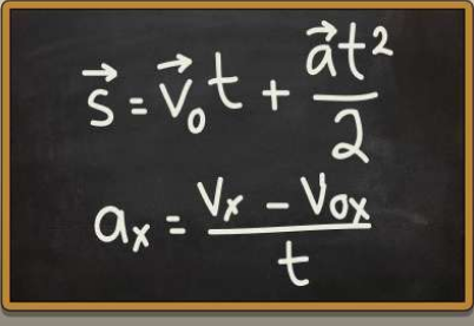 s⃗ = v⃗₀t + a⃗t²/2
aₓ = (vₓ − v₀ₓ)/t